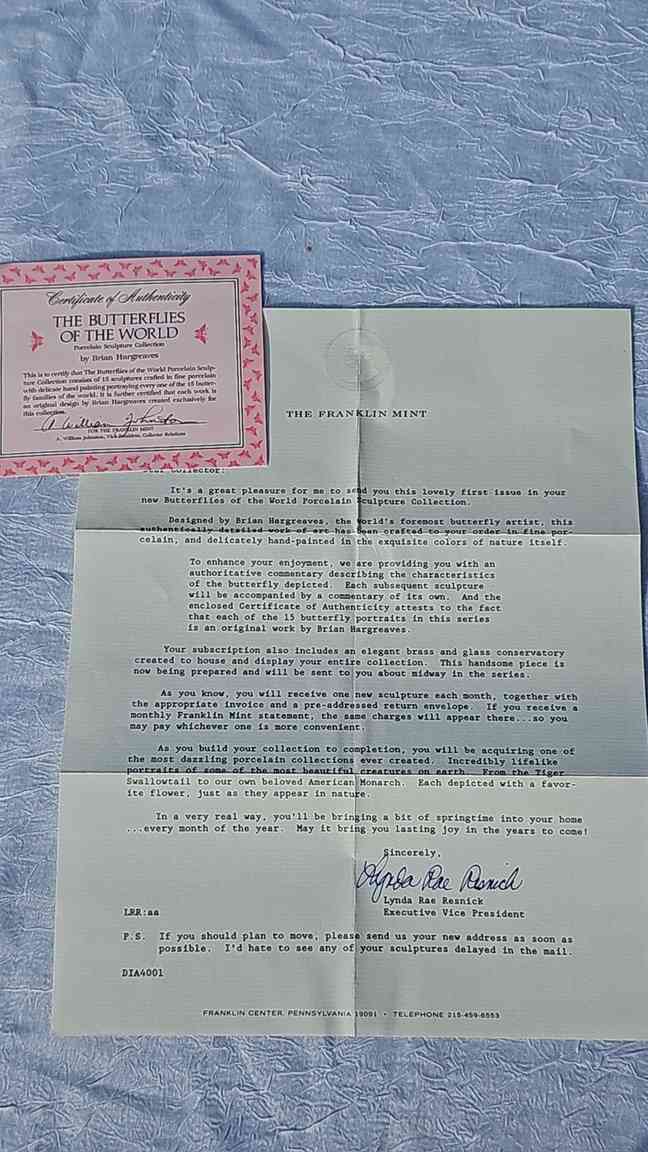 Certificate of Authenticity
THE BUTTERFLIES
OF THE WORLD
Porcelain Sculpture Collection
by Brian Hargreaves
This is to certify that The Butterflies of the World Porcelain Sculp-
ture Collection consists of 15 sculptures crafted in fine porcelain
with delicate hand painting portraying every one of the 15 butter-
fly families of the world. It is further certified that each work is
an original design by Brian Hargreaves created exclusively for
this collection.
A. William Johnston
FOR THE FRANKLIN MINT
A. William Johnston, Vice President, Collector Relations
THE FRANKLIN MINT
Collector:
It's a great pleasure for me to send you this lovely first issue in your
new Butterflies of the World Porcelain Sculpture Collection.
Designed by Brian Hargreaves, the world's foremost butterfly artist, this
authentically detailed work of art has been crafted to your order in fine por-
celain, and delicately hand-painted in the exquisite colors of nature itself.
To enhance your enjoyment, we are providing you with an
authoritative commentary describing the characteristics
of the butterfly depicted. Each subsequent sculpture
will be accompanied by a commentary of its own. And the
enclosed Certificate of Authenticity attests to the fact
that each of the 15 butterfly portraits in this series
is an original work by Brian Hargreaves.
Your subscription also includes an elegant brass and glass conservatory
created to house and display your entire collection. This handsome piece is
now being prepared and will be sent to you about midway in the series.
As you know, you will receive one new sculpture each month, together with
the appropriate invoice and a pre-addressed return envelope. If you receive a
monthly Franklin Mint statement, the same charges will appear there...so you
may pay whichever one is more convenient.
As you build your collection to completion, you will be acquiring one of
the most dazzling porcelain collections ever created. Incredibly lifelike
portraits of some of the most beautiful creatures on earth. From the Tiger
Swallowtail to our own beloved American Monarch. Each depicted with a favor-
ite flower, just as they appear in nature.
In a very real way, you'll be bringing a bit of springtime into your home
...every month of the year. May it bring you lasting joy in the years to come!
Sincerely,
Lynda Rae Resnick
Lynda Rae Resnick
Executive Vice President
LRR:aa
P.S. If you should plan to move, please send us your new address as soon as
possible. I'd hate to see any of your sculptures delayed in the mail.
DIA4001
FRANKLIN CENTER, PENNSYLVANIA 19091 • TELEPHONE 215-459-6553